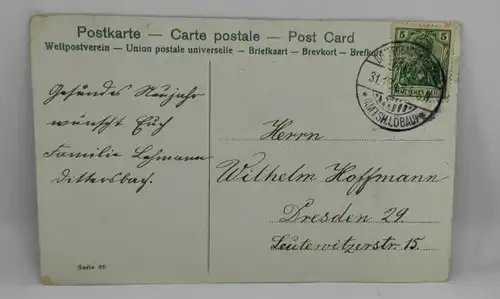 Postkarte — Carte postale — Post Card
Weltpostverein — Union postale universelle — Briefkaart — Brevkort — Brefkort
5 5
31.12
* (AMTSH. LÖBAU) *
Gesundes Neujahr
wünscht Euch
Familie Lehmann
Dittersbach.
Herrn
Wilhelm Hoffmann
Dresden 29.
Leutewitzerstr. 15.
Serie 99